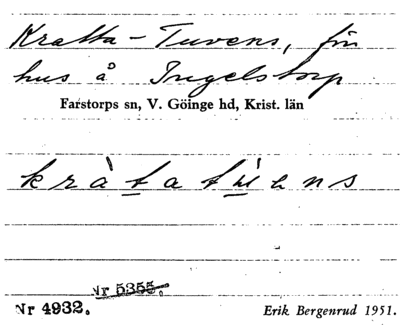 Kratta-Tuvens, för
hus å Ingelstorp
Farstorps sn, V. Göinge hd, Krist. län
Nr 5355.
Nr 4932.
Erik Bergenrud 1951.